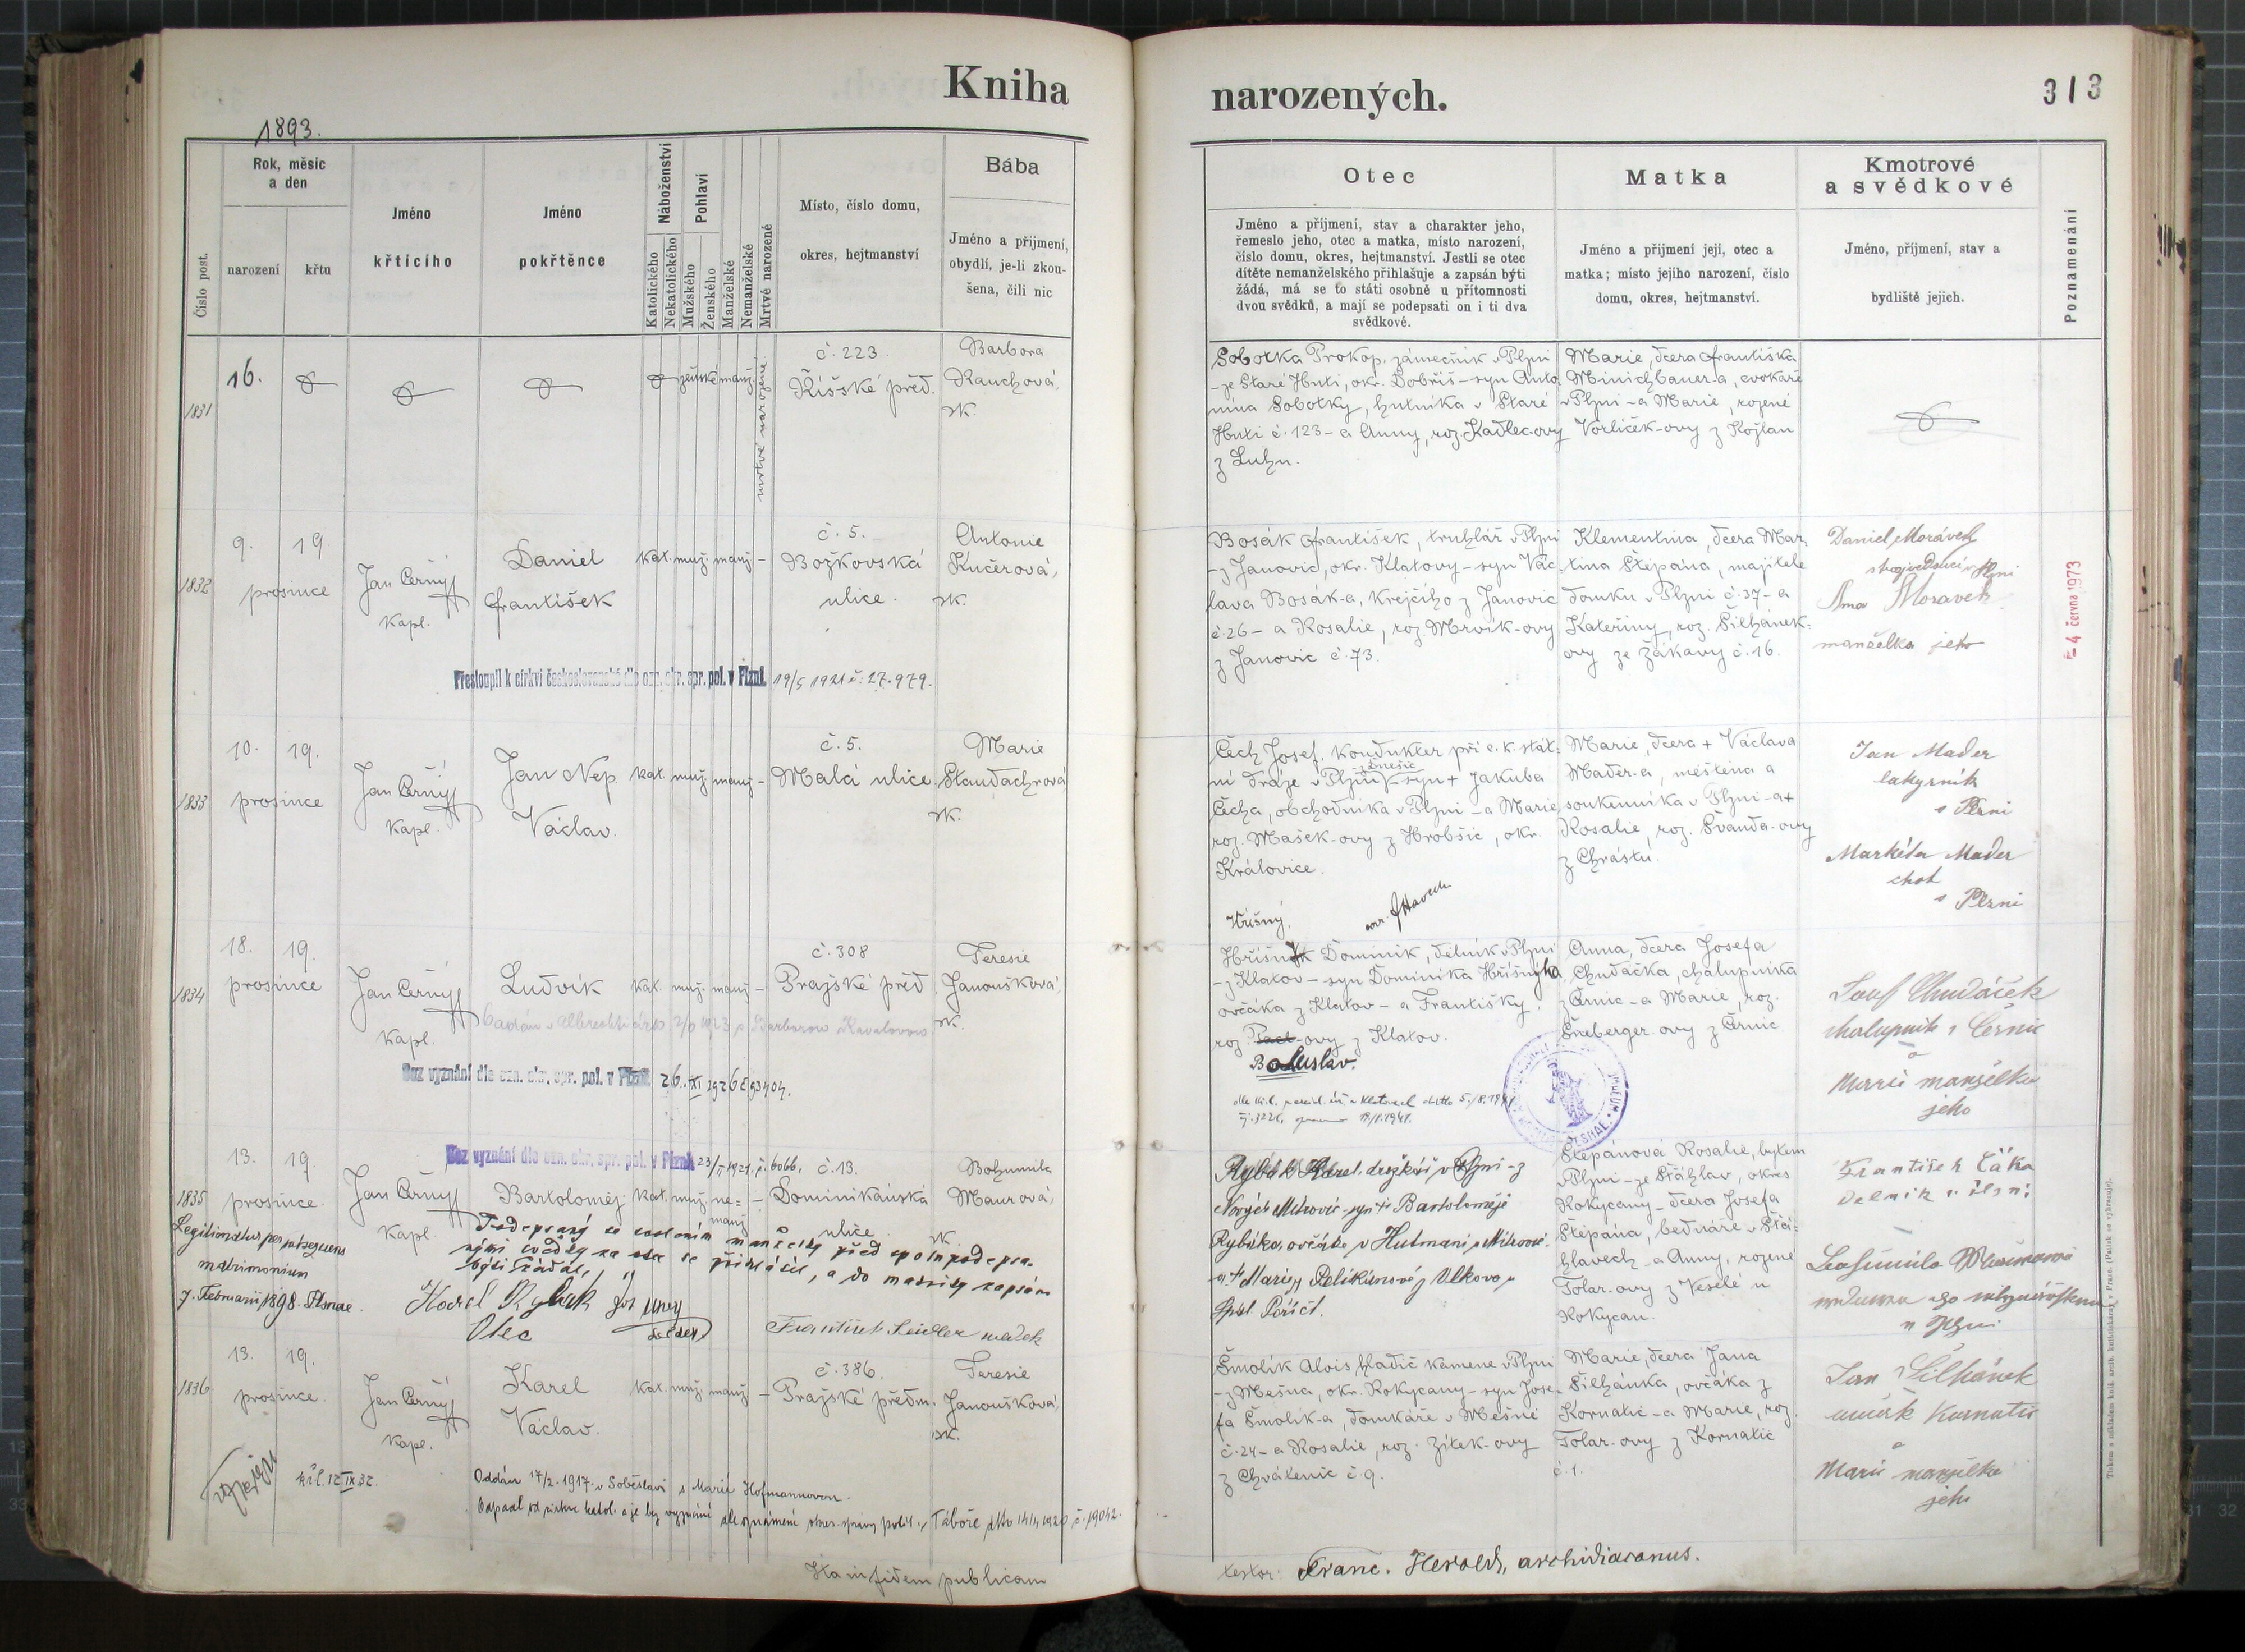 Kniha
narozených.
313
1893.
Číslo post.
Rok, měsíc
a den
narození
křtu
Jméno
křtícího
Jméno
pokřtěnce
Náboženství
Katolického
Nekatolického
Pohlaví
Mužského
Ženského
Manželské
Nemanželské
Mrtvě narozené
Místo, číslo domu,
okres, hejtmanství
Bába
Jméno a přijmení,
obydlí, je-li zkou-
šena, čili nic
Otec
Jméno a příjmení, stav a charakter jeho,
řemeslo jeho, otec a matka, místo narození,
číslo domu, okres, hejtmanství. Jestli se otec
dítěte nemanželského přihlašuje a zapsán býti
žádá, má se to státi osobně u přítomnosti
dvou svědků, a mají se podepsati on i ti dva
svědkové.
Matka
Jméno a přijmení její, otec a
matka; místo jejího narození, číslo
domu, okres, hejtmanství.
Kmotrové
a svědkové
Jméno, přijmení, stav a
bydliště jejich.
Poznamenání
1831
16.
ženské
manž.
mrtvě narozené
č. 223.
Říšské před.
Barbora
Rauchová,
zk.
Sobotka Prokop, zámečník v Plzni
- ze Staré Huti, okr. Dobříš - syn Anto-
nína Sobotky, hutníka v Staré
Huti č. 123 - a Anny, roz. Kadlec-ovy
z Luhu.
Marie, dcera Františka
Minichbauer-a, cvokaře
v Plzni - a Marie, rozené
Vorlíček-ovy z Kožlan
1832
9. 19.
prosince
Jan Černý
kapl.
Daniel
František
kat. muž. manž. -
č. 5.
Božkovská
ulice.
Antonie
Kučerová,
zk.
Přestoupil k církvi československé dle ozn. okr. spr. pol. v Plzni 19/5 1921 č. 27.979.
Bosák František, truhlář v Plzni
- z Janovic, okr. Klatovy - syn Vác-
lava Bosák-a, krejčího z Janovic
č. 26 - a Rosalie, roz. Mrvík-ovy
z Janovic č. 73.
Klementina, dcera Mar-
tina Štěpána, majitele
domku v Plzni č. 37 - a
Kateřiny, roz. Šilhánek-
ovy ze Žákavy č. 16.
Daniel Morávek
strojvedoucí v Plzni
Anna Moravek
manželka jeho
4 června 1973
1833
10. 19.
prosince
Jan Černý
kapl.
Jan Nep.
Václav.
kat. muž. manž. -
č. 5.
Malá ulice.
Marie
Staudachrová
zk.
Čech Josef, kondukter při c. k. stát-
ní dráze v Plzni - syn + Jakuba
Čecha, obchodníka v Plzni - a Marie
roz. Mašek-ovy z Hrobšic, okr.
Královice.
Marie, dcera + Václava
Mader-a, měštína a
soukenníka v Plzni - a +
Rosalie, roz. Švanda-ovy
z Chrástu.
Jan Mader
lakyrník
v Plzni
Markéta Mader
choť
v Plzni
1834
18. 19.
prosince
Jan Černý
kapl.
Ludvík
kat. muž. manž. -
č. 308
Pražské před.
Teresie
Janoušková,
zk.
Bez vyznání dle ozn. okr. spr. pol. v Plzni 26. XI 1926 č. 93404.
Hříšný.
Dominik, dělník v Plzni
- z Klatov - syn Dominika Hříšného
ovčáka z Klatov - a Františky,
roz. -ovy z Klatov.
Boluslav.
Anna, dcera Josefa
Chudáčka, chalupníka
z Černic - a Marie, roz.
Šneberger-ovy z Černic
Josef Chudáček
chalupník z Černic
a
Marie manželka
jeho
1835
13. 19.
prosince.
Jan Černý
kapl.
Bez vyznání dle ozn. okr. spr. pol. v Plzni 23/ 1921. č. 6066.
Bartoloměj.
kat. muž. ne-
manž
č. 13.
Dominikánská
ulice.
Bohumila
Maurová,
zk.
Legitimatus per subsequens
matrimonium
7. Februarii 1898. Plsnae.
Podepsaný se svolením manželky před spolupodepsa-
nými svědky za otce se přihlásil, a do matriky zapsán
býti žádal.
Karel Rybák
Otec
svědek
František Seidler svědek
Rybák Karel, drožkář v Plzni - z
Nových Mitrovic - syn + Bartoloměje
Rybáka, ovčáka v Hutmani u Mitrovic
a + Marie, z Vlkova u
Spál. Poříčí.
Štěpánová Rosalie, bytem
v Plzni - ze Šťáhlav, okres
Rokycany - dcera Josefa
Štěpána, bednáře v Šťá-
hlavech - a Anny, rozené
Tolar-ovy z Veselé u
Rokycan.
František Čáka
Dělník v Plzni
v Plzni
1836
13. 19.
prosince.
Jan Černý
kapl.
Karel
Václav.
kat. muž. manž. -
č. 386.
Pražské předm.
Teresie
Janoušková,
zk.
Oddán 17/2. 1917. v Soběslavi s Marií Hofmannovou.
Odpadl od církve katol. a je bez vyznání dle oznámení okres. správy polit. v Táboře dto 14/4 1920, č. 19042.
Šmolík Alois, hladič kamene v Plzni
- z Mešna, okr. Rokycany - syn Jose-
fa Šmolík-a, domkáře v Mešně
č. 24 - a Rosalie, roz. Zítek-ovy
z Chválenic č. 9.
Marie, dcera Jana
Šilhánka, ovčáka z
Kornatic - a Marie, roz.
Tolar-ovy z Kornatic
č. 1.
Jan Šilhánek
Kornatic
a
Marie manželka
jeho
Ita in fidem publicam
testor: Franc. Herold, archidiaconus.